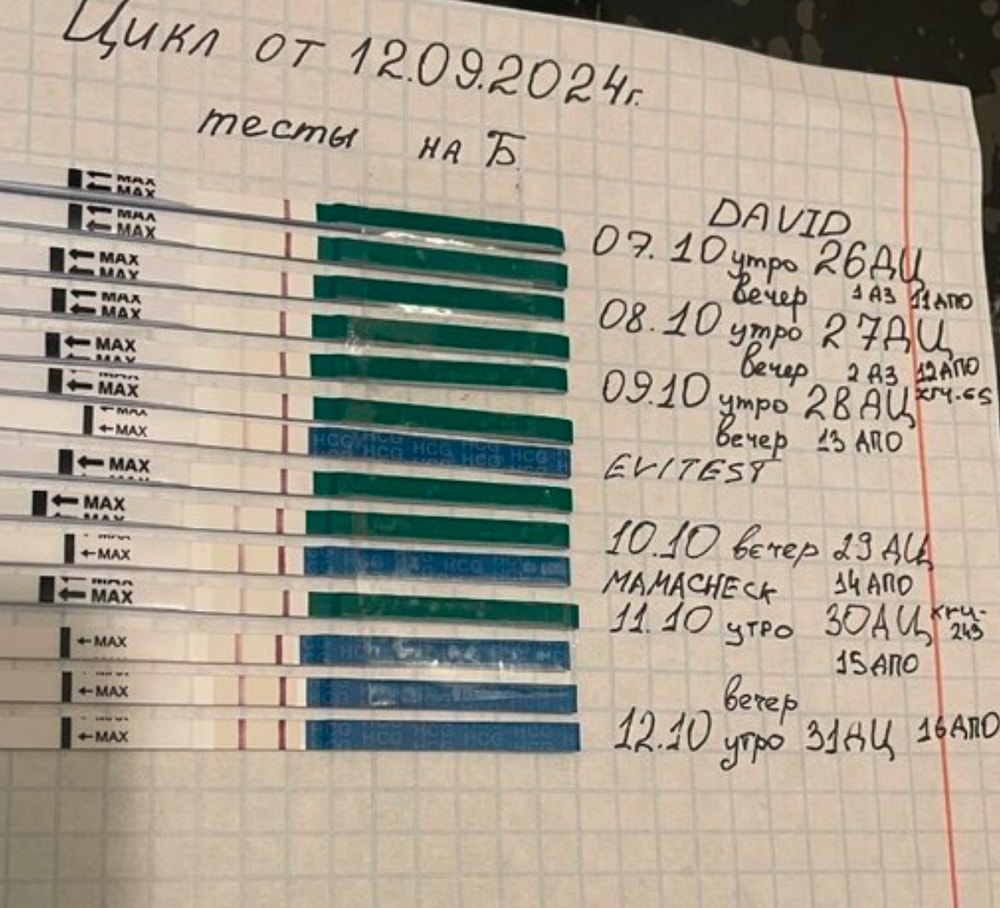 Цикл от 12.09.2024г.
тесты на Б
MAX
MAX
MAX
MAX
DAVID
07.10 утро 26ДЦ
вечер 1 АЗ 11АПО
MAX
MAX
MAX
MAX
08.10 утро 27ДЦ
вечер 2 АЗ 12АПО
MAX
MAX
09.10 утро 28ДЦ хгч-65
вечер 13 АПО
MAX
MAX
MAX
HCG HCG HCG HCG
EVITEST
MAX
MAX
10.10 вечер 29ДЦ
MAX
HCG
MAMACHECK 14АПО
MAX
MAX
11.10 утро 30ДЦ хгч-243
15АПО
MAX
вечер
MAX
12.10 утро 31ДЦ 16АПО
MAX
HCG HCG HCG HCG